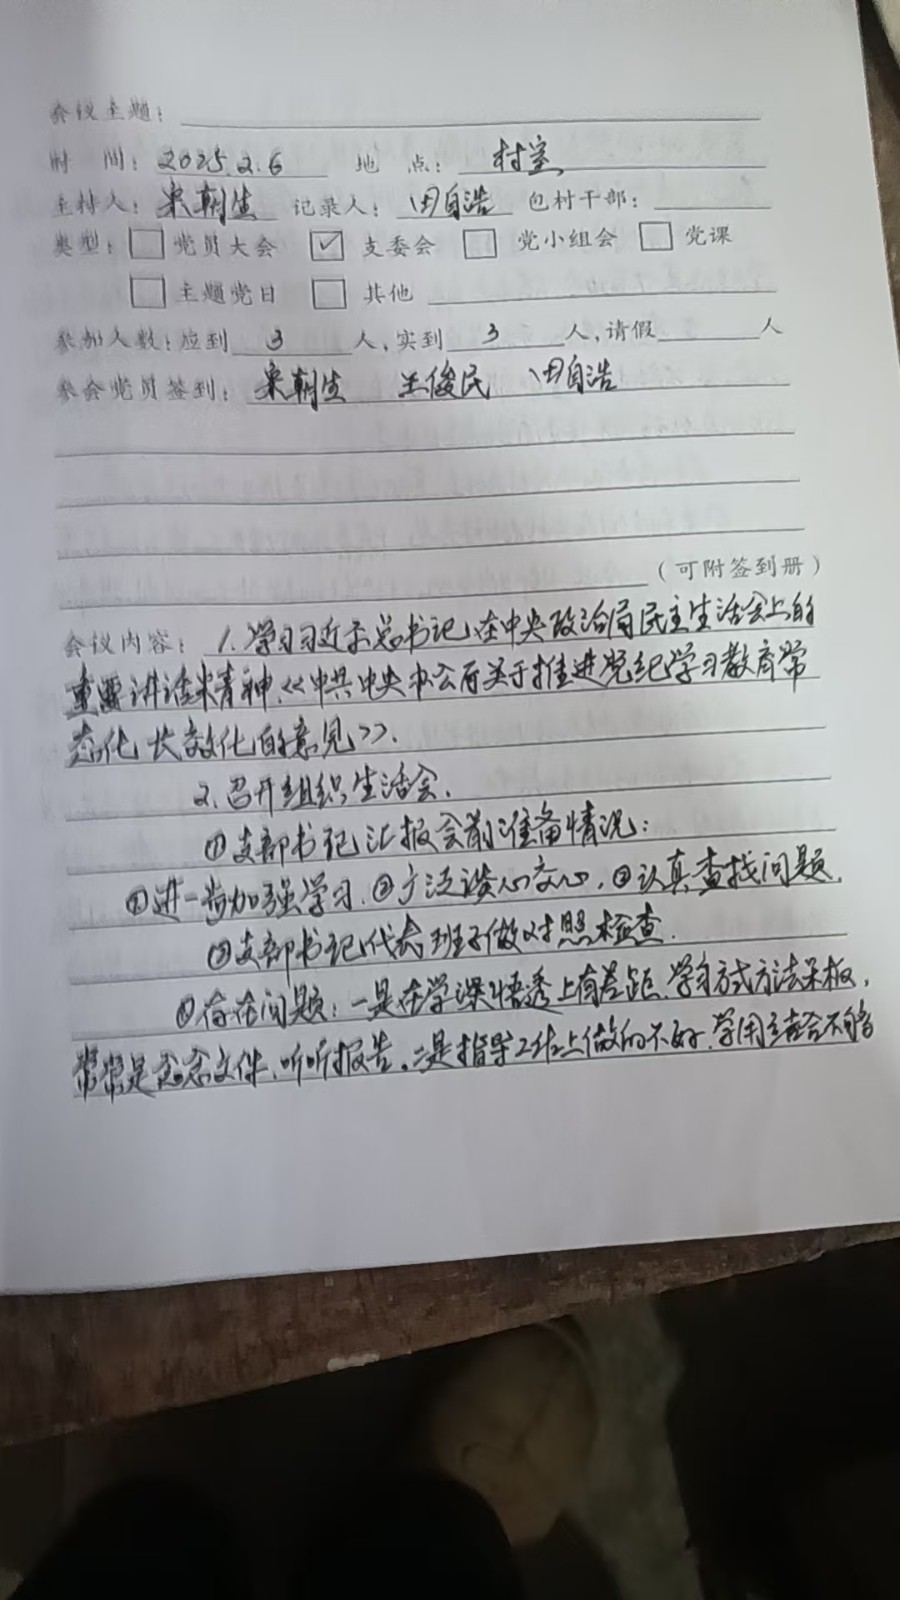 会议主题：
时 间：2025.2.6 地 点：村室
主持人：宋朝生 记录人：田自浩 包村干部：
类型：□党员大会 ☑支委会 □党小组会 □党课
□主题党日 □其他
参加人数：应到 3 人，实到 3 人，请假 人
参会党员签到：宋朝生 王俊民 田自浩
（可附签到册）
会议内容：1.学习习近平总书记在中央政治局民主生活会上的
重要讲话精神、《中共中央办公厅关于推进党纪学习教育常
态化长效化的意见》。
2.召开组织生活会.
①支部书记汇报会前准备情况：
①进一步加强学习.②广泛谈心交心.③认真查找问题.
②支部书记代表班子做对照检查.
①存在问题：一是在学深悟透上有差距.学习方式方法呆板,
常常是念念文件、听听报告。二是指导工作上做的不好.学用结合不够